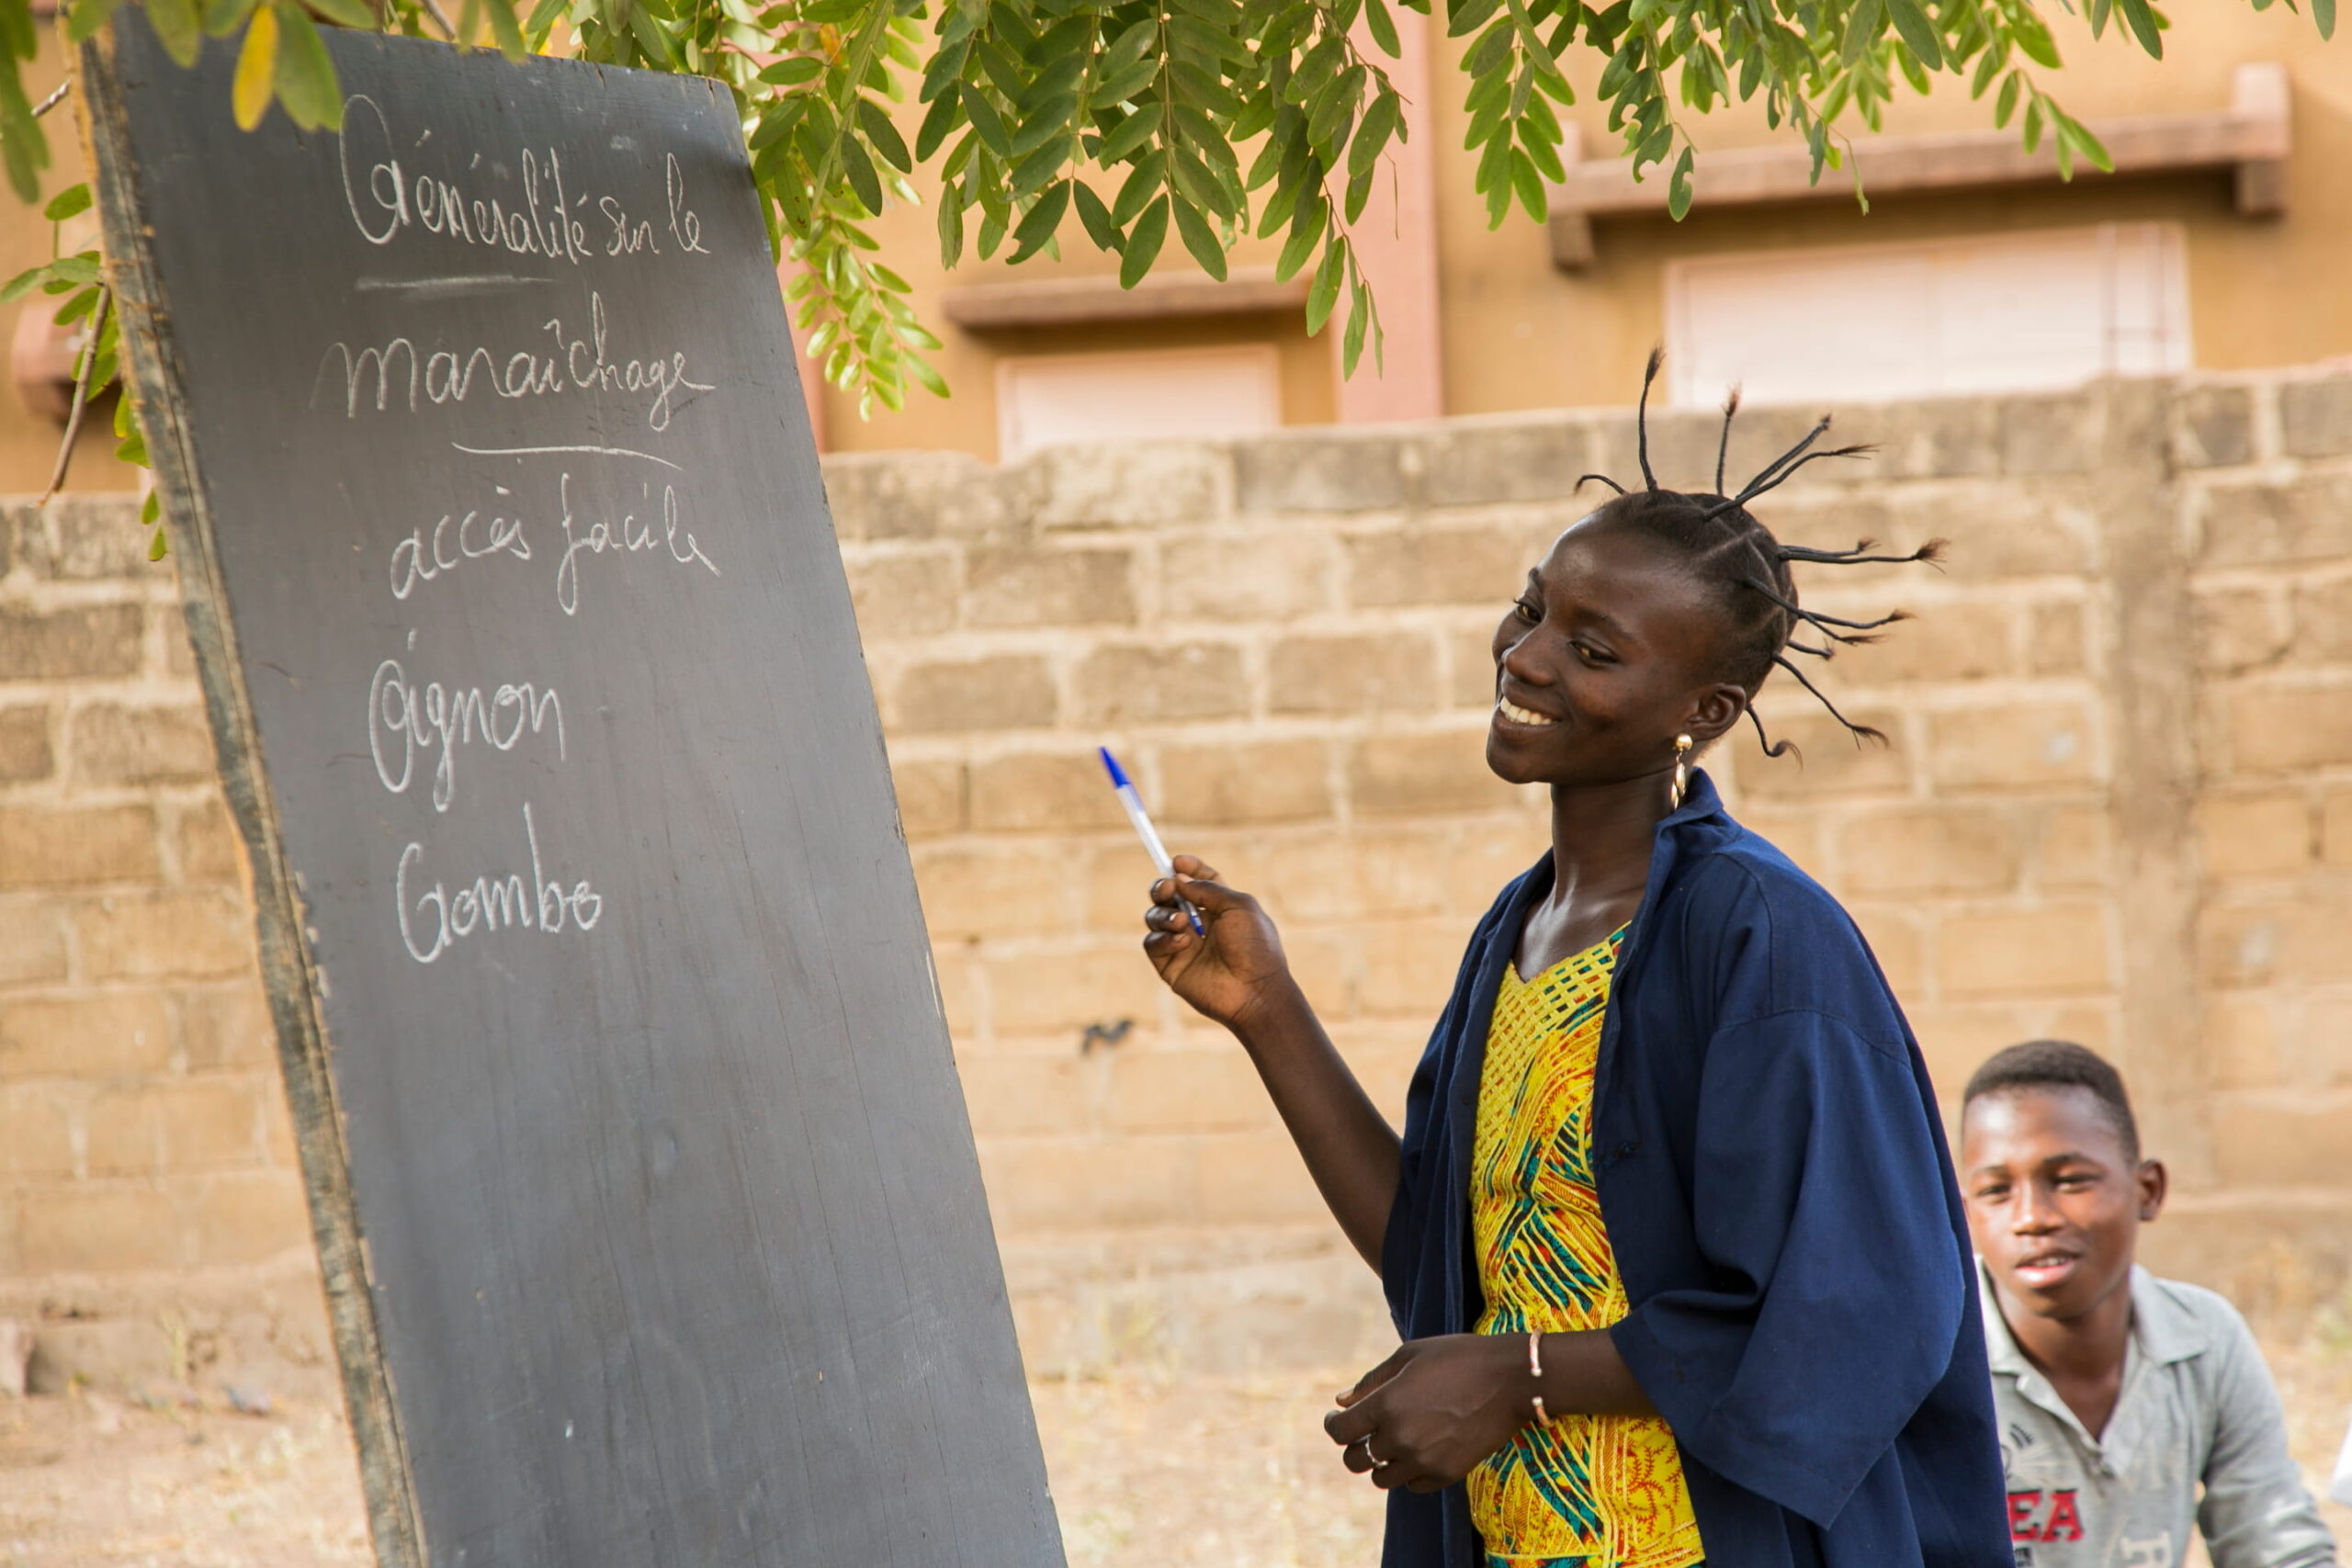 Généralité sur le
maraîchage
accès facile
Oignon
Gombo
EA